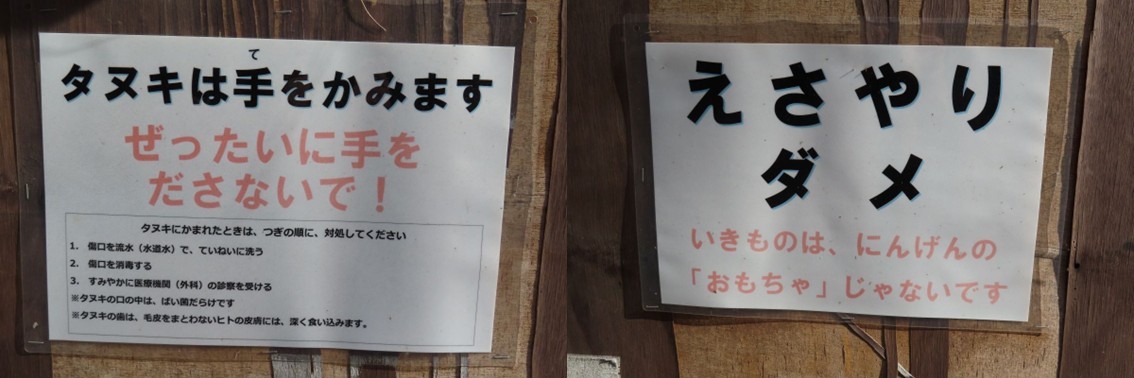 て
タヌキは手をかみます
ぜったいに手を
ださないで！
タヌキにかまれたときは、つぎの順に、対処してください
1. 傷口を流水（水道水）で、ていねいに洗う
2. 傷口を消毒する
3. すみやかに医療機関（外科）の診察を受ける
※タヌキの口の中は、ばい菌だらけです
※タヌキの歯は、毛皮をまとわないヒトの皮膚には、深く食い込みます。
えさやり
ダメ
いきものは、にんげんの
「おもちゃ」じゃないです